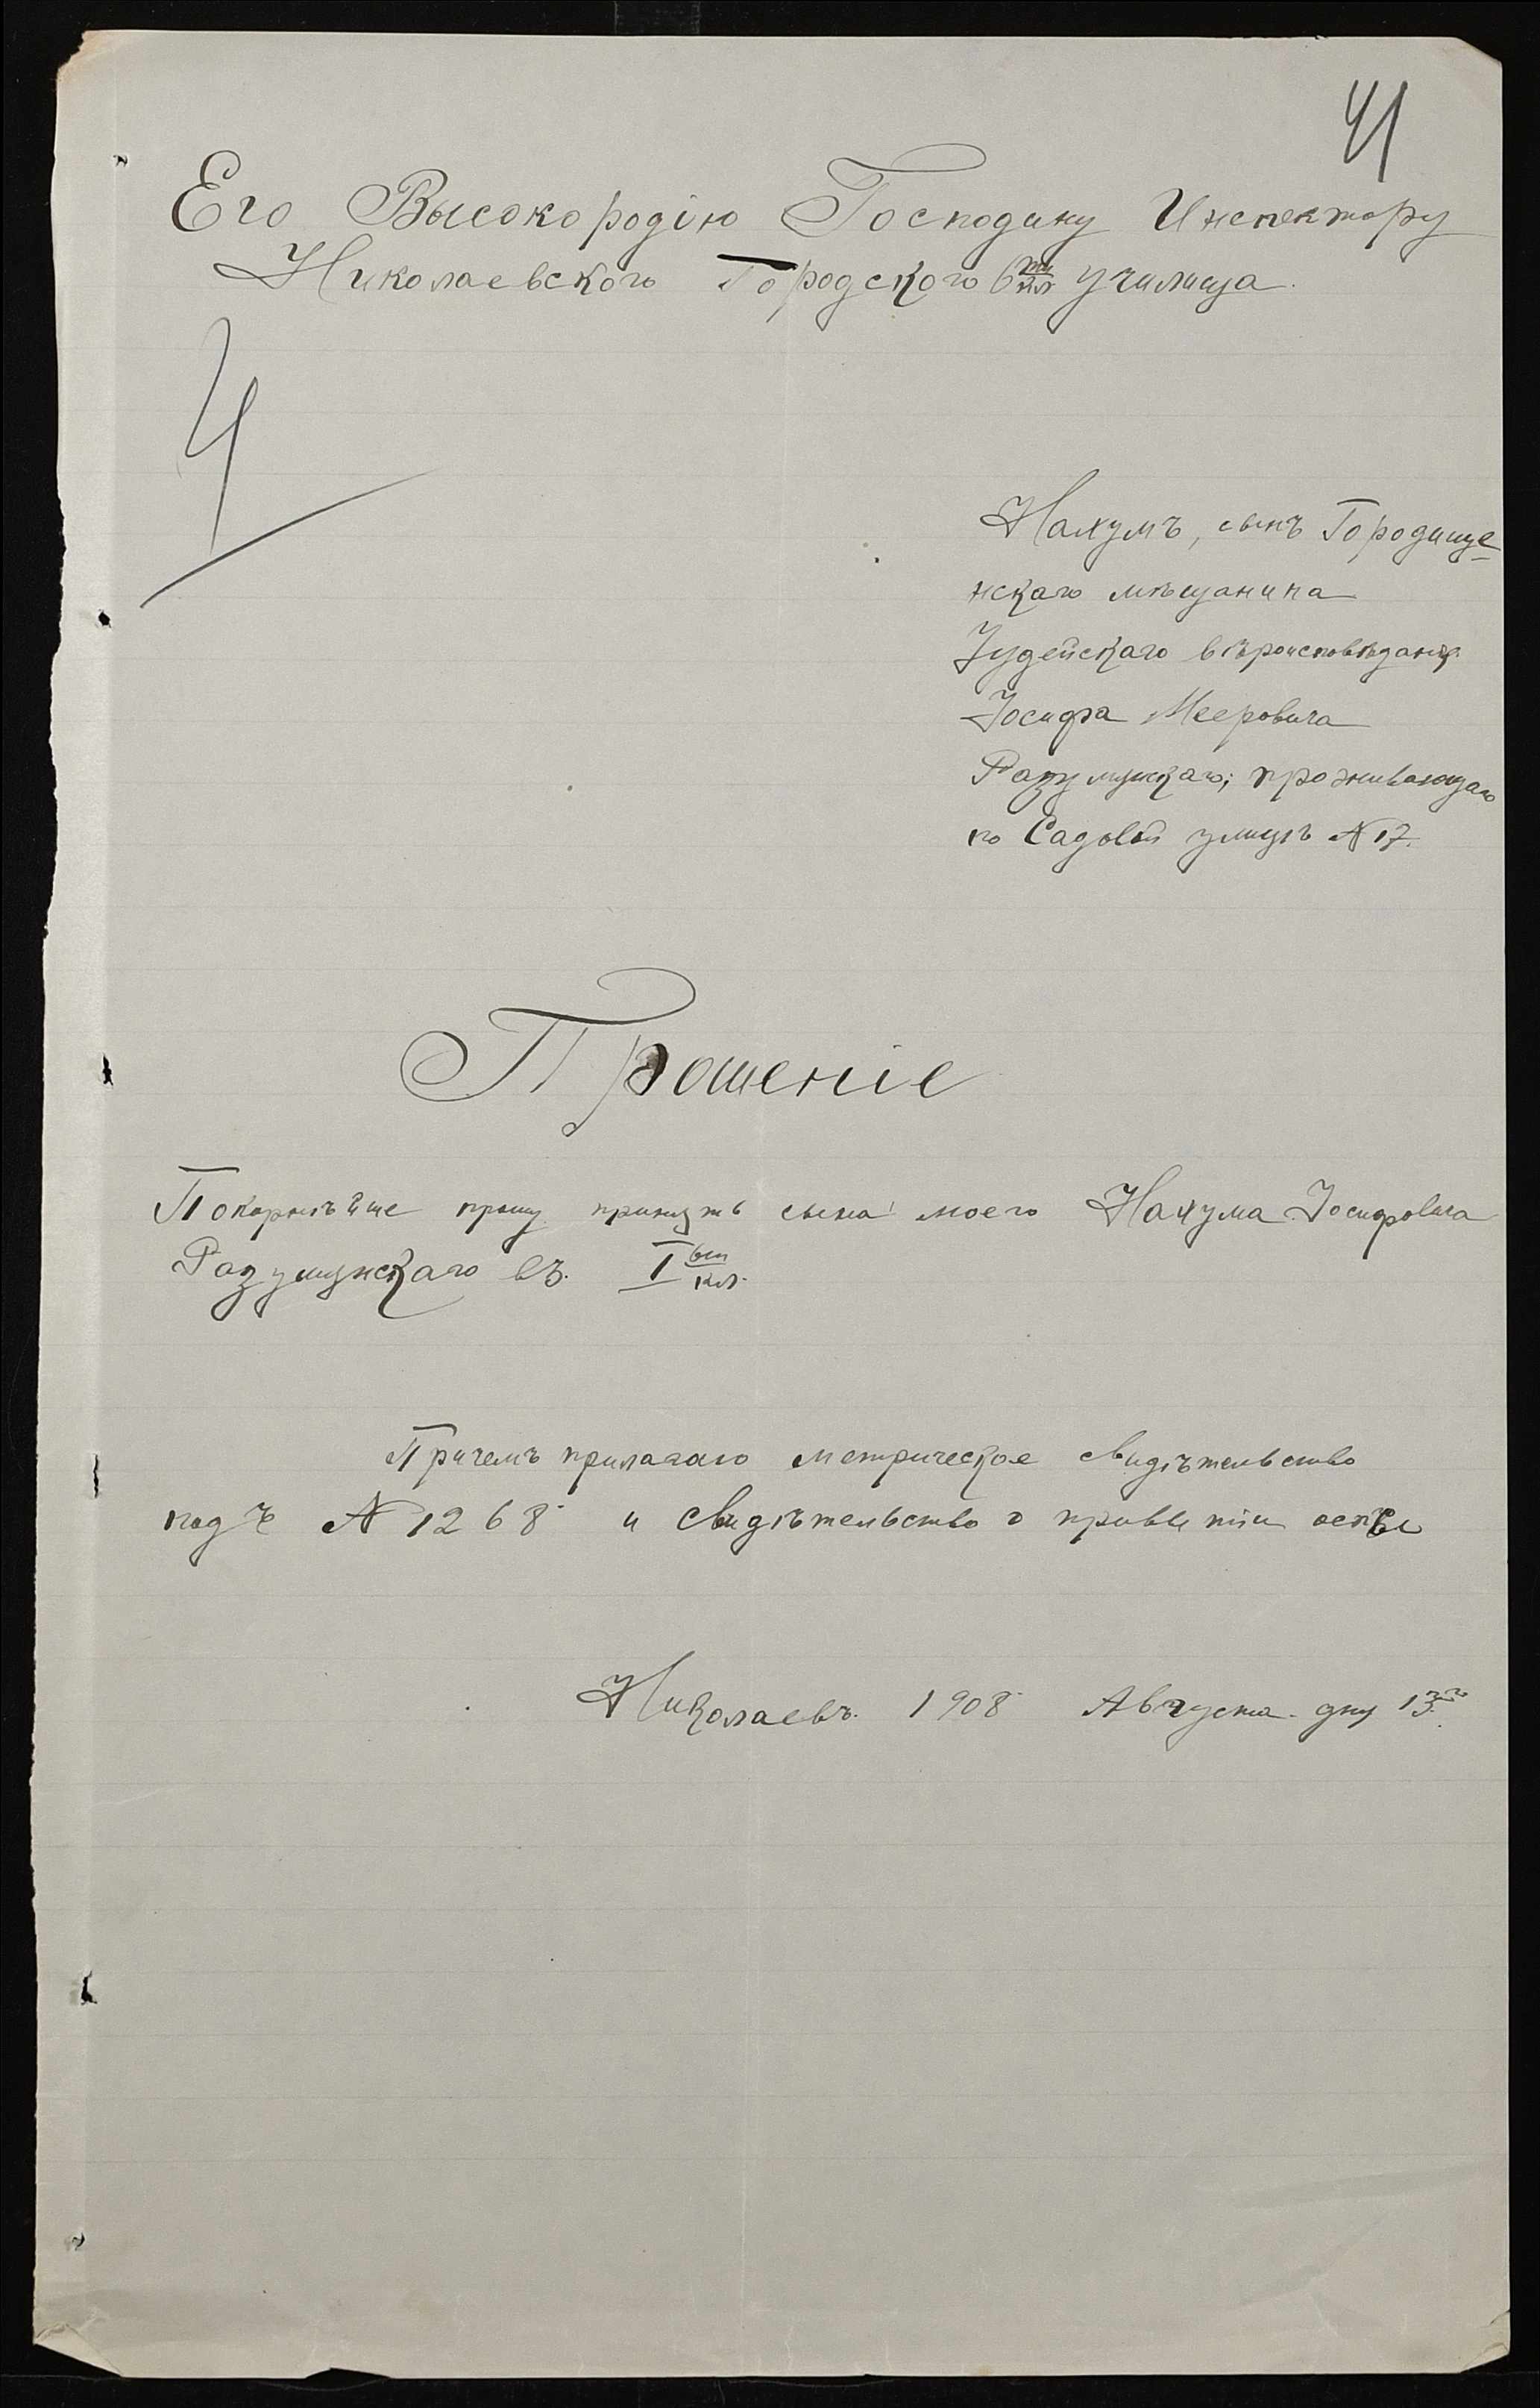 41
Его Высокородію Господину Инспектору
Николаевского Городского 6ти кл училища.
4
Нахумъ, сынъ Городище-
нскаго мѣщанина
Іудейскаго вѣроисповѣданія
Іосифа Мееровича
Разумужскаго; проживающаго
по Садовой улицѣ № 17.
Прошеніе
Покорнѣйше прошу принять сына моего Нахума Іосифовича
въ. Iый кл.
Причемъ прилагаю метрическое свидѣтельство
подъ № 1268 и свидѣтельство о привитіи оспы
Николаевъ. 1908 Августа. дня 13го.